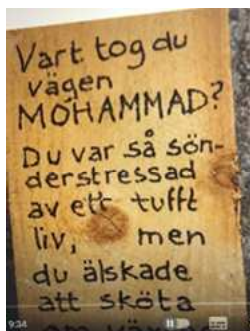 Vart tog du
vägen
MOHAMMAD?
Du var så sön-
derstressad
av ett tufft
liv, men
du älskade
att sköta
om
9:34